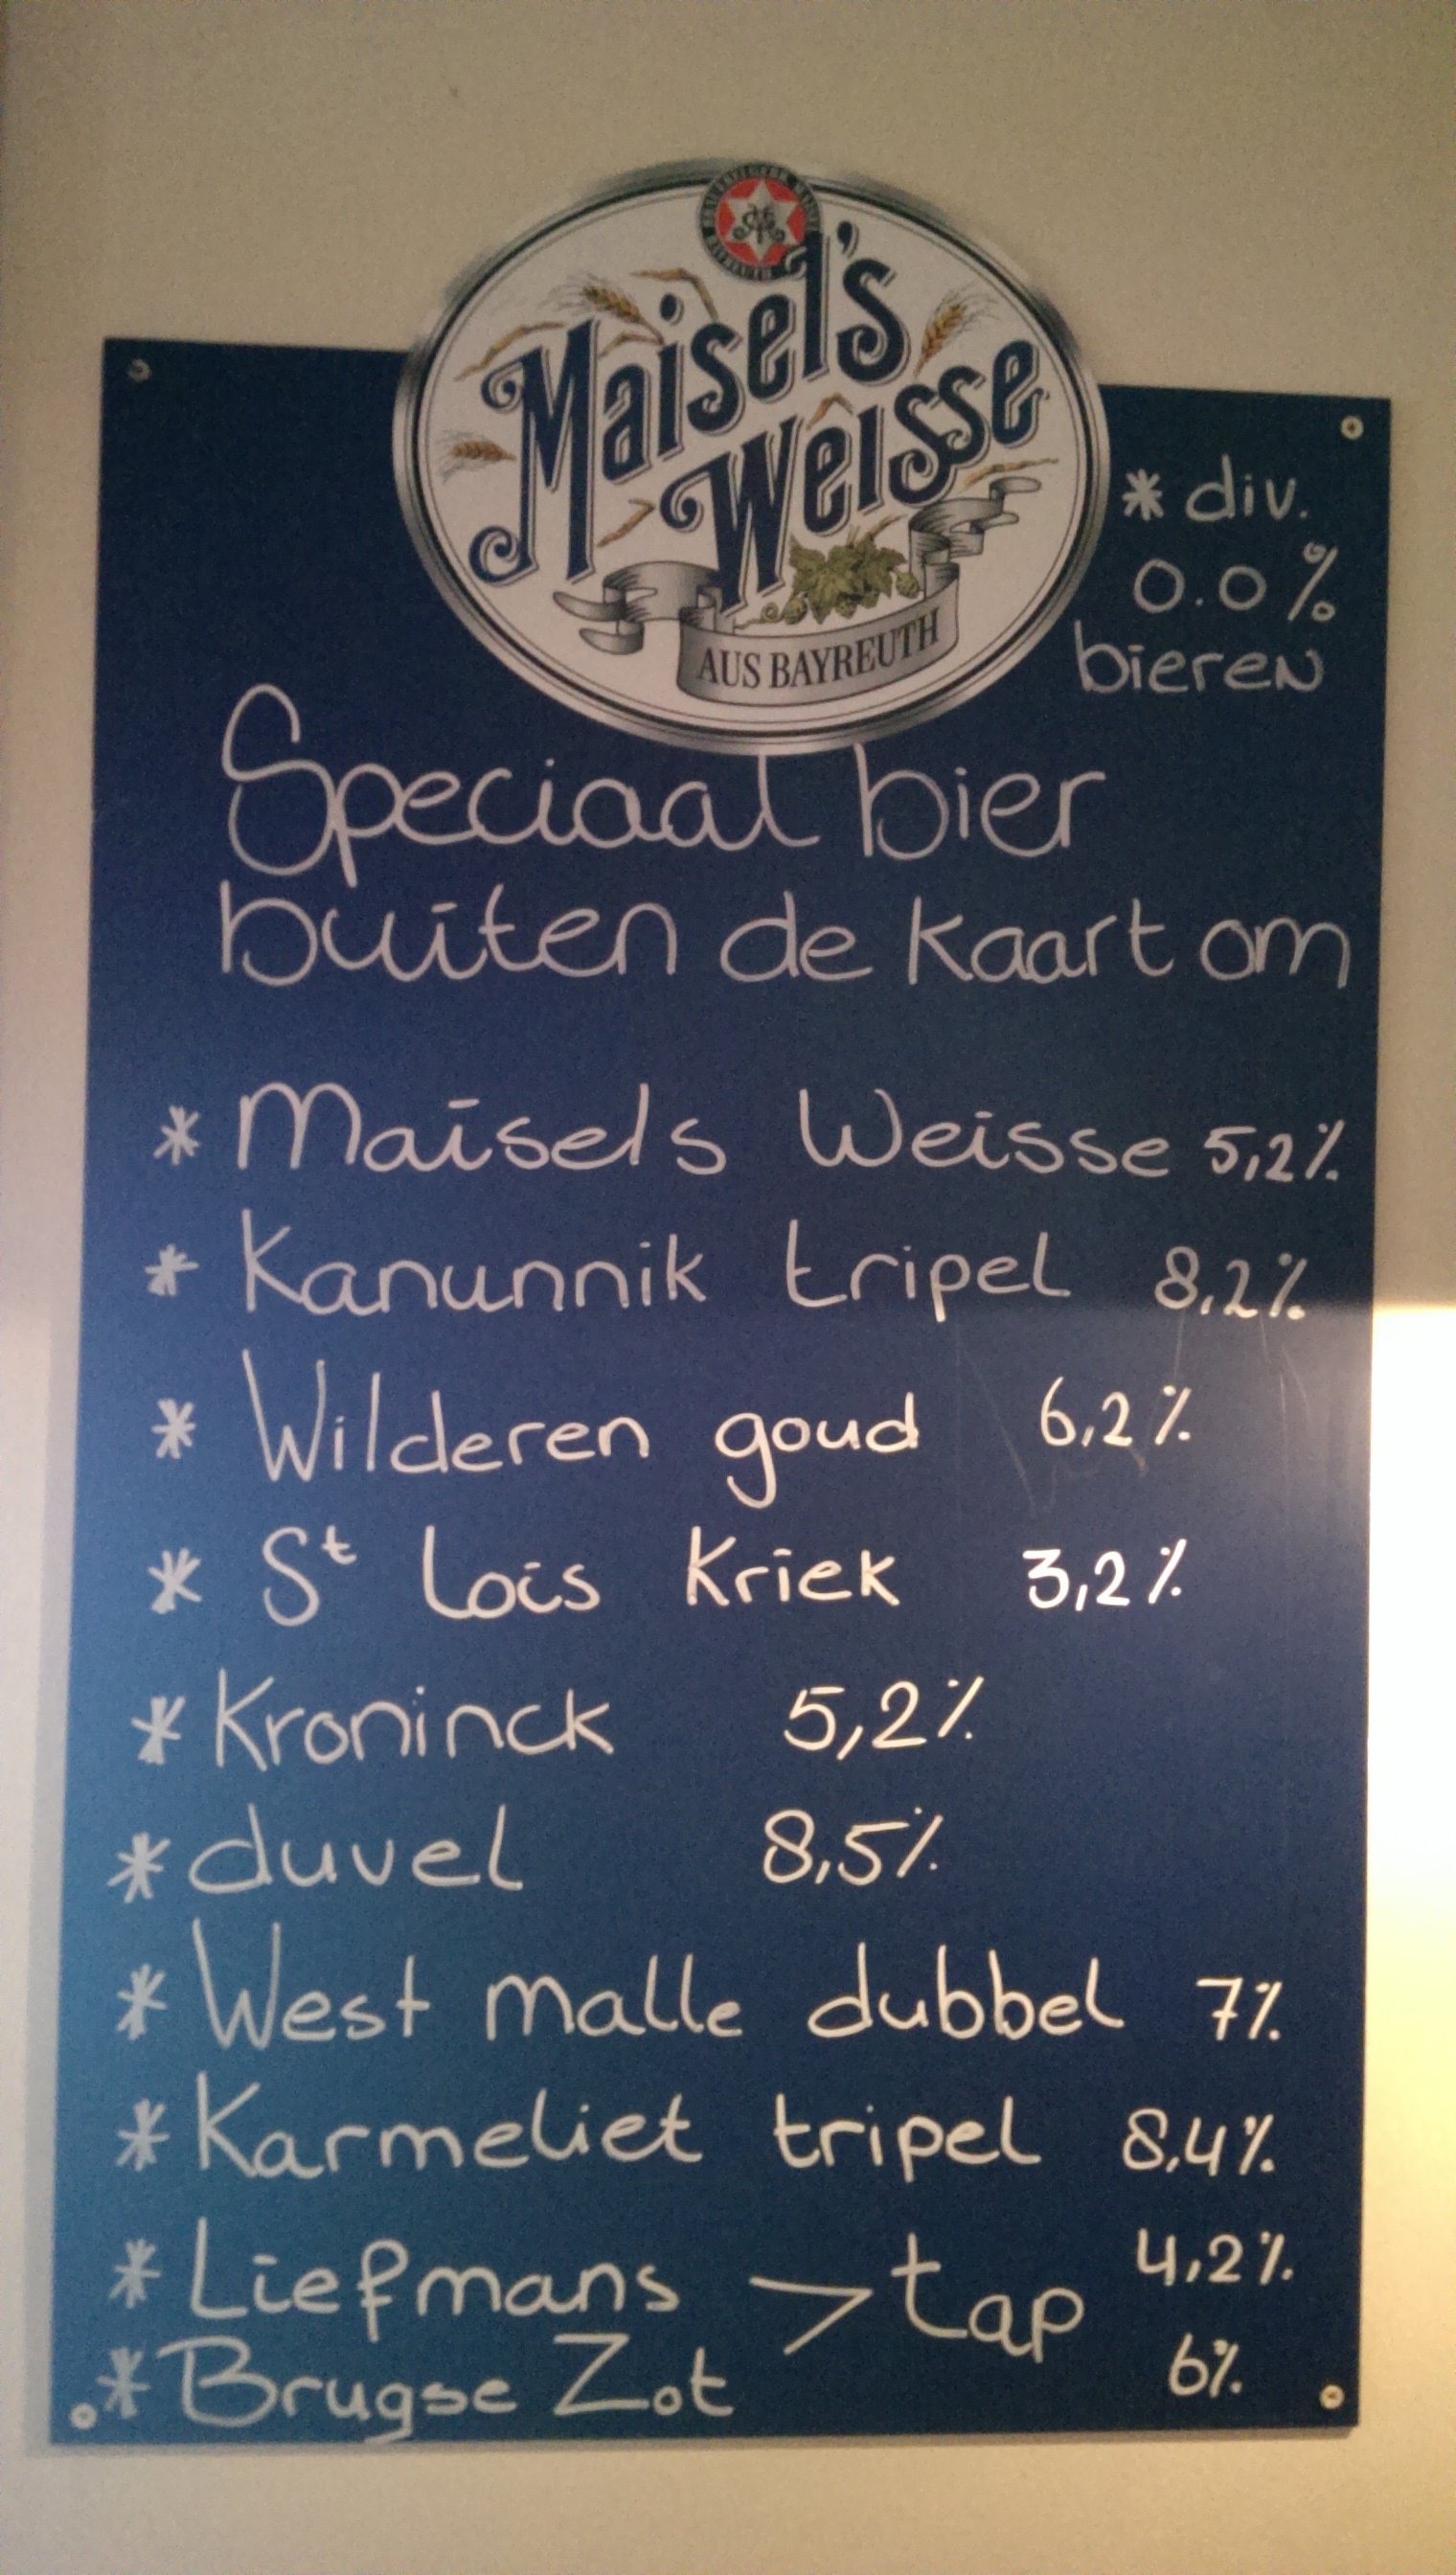 Maisel's
Weisse
AUS BAYREUTH
* div.
0.0%
bieren
Speciaal bier
buiten de kaart om
* Maisels Weisse 5,2%
* Kanunnik tripel 8,2%
* Wilderen goud 6,2%
* St Lois Kriek 3,2%
* Kroninck 5,2%
* duvel 8,5%
* West malle dubbel 7%
* Karmeliet tripel 8,4%
* Liefmans > tap 4,2%
* Brugse Zot 6%